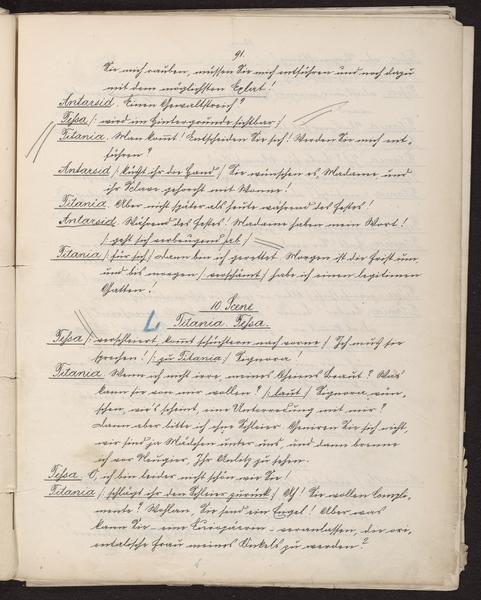 91.
Sie mich rauben, müssen Sie mich entführen und noch dazu
mit dem möglichsten Eclat!
Antarsid. Einen Gewaltstreich?
Tessa /: wird im Hintergrunde sichtbar :/
Titania. Man kommt! Entscheiden Sie sich! Werden Sie mich ent-
führen?
Antarsid /: küßt ihr die Hand :/ Sie wünschen es, Madame und
ihr Sclave gehorcht mit Wonne!
Titania. Aber nicht später als heute während des Festes!
Antarsid. Während des Festes! Madame haben mein Wort!
/: geht sich verbeugend ab :/
Titania /: für sich :/ Dann bin ich gerettet. Morgen ist die Frist um
und bis morgen /: verschämt :/ habe ich einen legitimen
Gatten!
10 Scene
Titania. Tessa.
Tessa /: verschleiert, kommt schüchtern nach vorne :/ Ich muß sie
sprechen! /: zu Titania :/ Signora!
Titania. Wenn ich nicht irre, meines Oheims Braut? Was
kann sie von mir wollen? /: laut :/ Signora, wün-
schen, wie's scheint, eine Unterredung mit mir?
Dann aber bitte ich ohne Schleier. Geniren Sie sich nicht,
wir sind ja Mädchen unter uns, und dann brenne
ich vor Neugier, Ihr Antlitz zu sehen.
Tessa. O, ich bin leider nicht schön wie Sie!
Titania /: schlägt ihr den Schleier zurück :/ Ah! Sie wollen Compli-
mente? Wohlan, Sie sind ein Engel! Aber was
kann Sie - eine Europäerin - veranlassen, die ori-
entalische Frau meines Onkels zu werden?